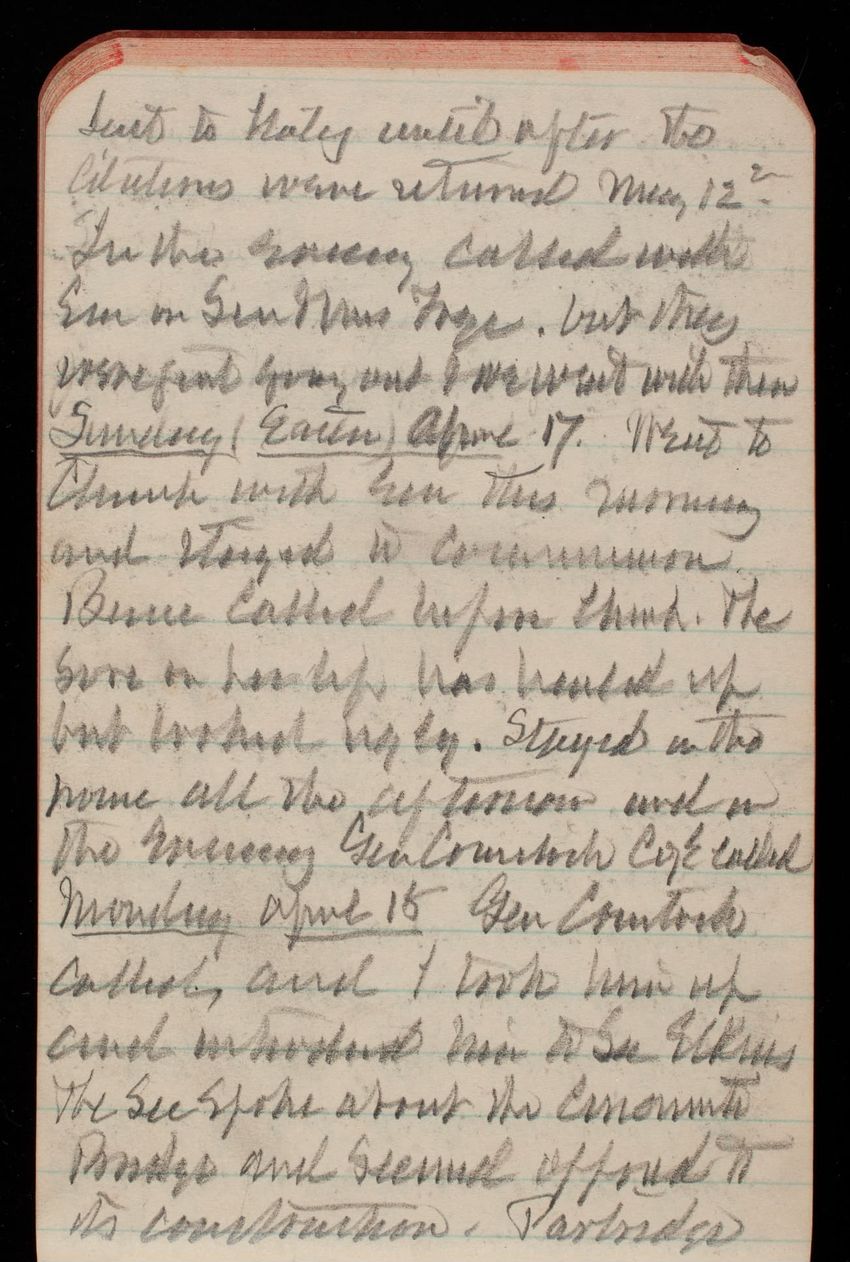 sent to Italy until after the
citations were returned May 12
In the evening called with
Em on Gen & Mrs , but they
were just going out & we went with them
Sunday (Easter) April 17. Went to
Church with Em this morning
and stayed to communion.
called before church. The
sore on her lip has healed up
but looked ugly. Stayed in the
house all the afternoon and in
the evening Gen Comstock C of E called
Monday April 18 Gen Comstock
called, and I took him up
and introduced him to Sec Elkins
The Sec spoke about the Cincinnati
Bridge and seemed opposed to
its construction. Partridge